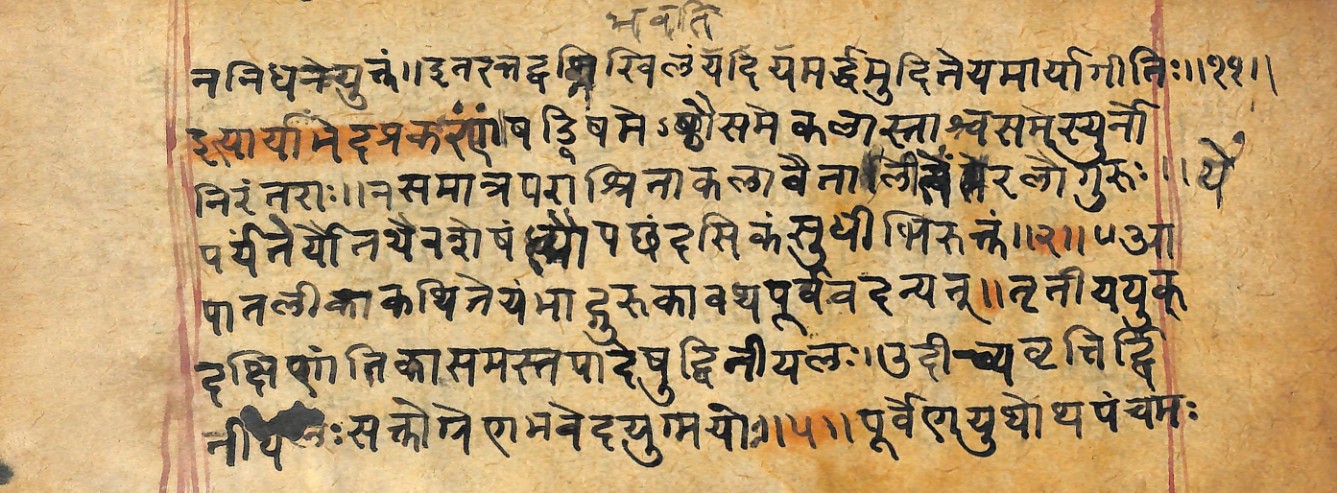 भवति
ननिधनेयुक्तं॥इतरत्तद्वन्निखिलंयदियमर्द्धमुदितेयमार्यागीतिः॥११॥
इत्यार्यामेदप्रकरणं॥षड्विषमेऽष्टौसमेकलास्ताश्चसमेस्युर्नो
निरंतराः॥नसमात्रपराश्रिताकलावैतालीयेंतेरलौगुरुः॥
पर्यंतेर्यौतथैवशेषंत्वौपछंदसिकंसुधीभिरुक्तं॥२॥५आ
पातलीकाकथितेयंभाद्गुरुकावथपूर्ववदन्यत्॥तृतीययुक्
दक्षिणांतिकासमस्तपादेषुद्वितीयलः।उदीच्यवृत्तिर्द्वि
तीयलःसक्तोग्रेणभवेदयुग्मयोः॥५॥पूर्वेणयुथोथपंचमः